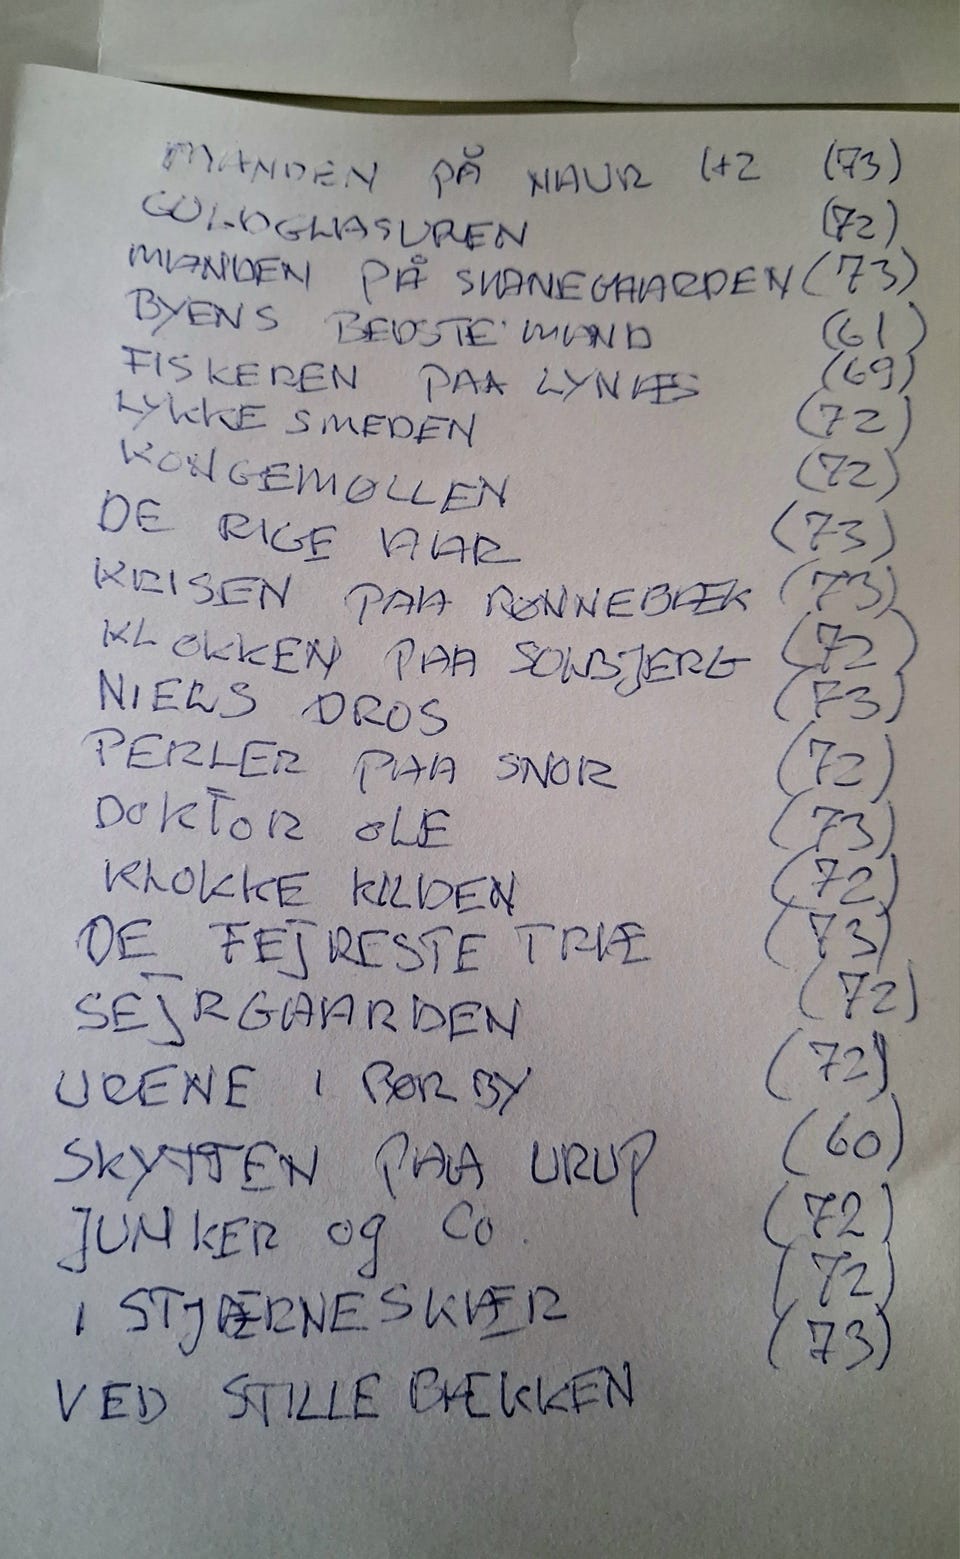 MANDEN PÅ NAUR 1+2 (73)
GULDGLASUREN (72)
MANDEN PÅ SVANEGAARDEN (73)
BYENS BEDSTE MAND (61)
FISKEREN PAA LYNÆS (69)
LYKKE SMEDEN (72)
KONGEMØLLEN (72)
DE RIGE AAR (73)
KRISEN PAA RØNNEBÆK (73)
KLOKKEN PAA SOLBJERG (72)
NIELS DROS (73)
PERLER PAA SNOR (72)
DOKTOR OLE (73)
KLOKKE KILDEN (72)
DE FEJRESTE TRÆ (73)
SEJRGAARDEN (72)
URENE I BØRBY (72)
SKYTTEN PAA URUP (60)
JUNKER og Co. (72)
I STJÆRNESKÆR (72)
VED STILLE BÆKKEN (73)